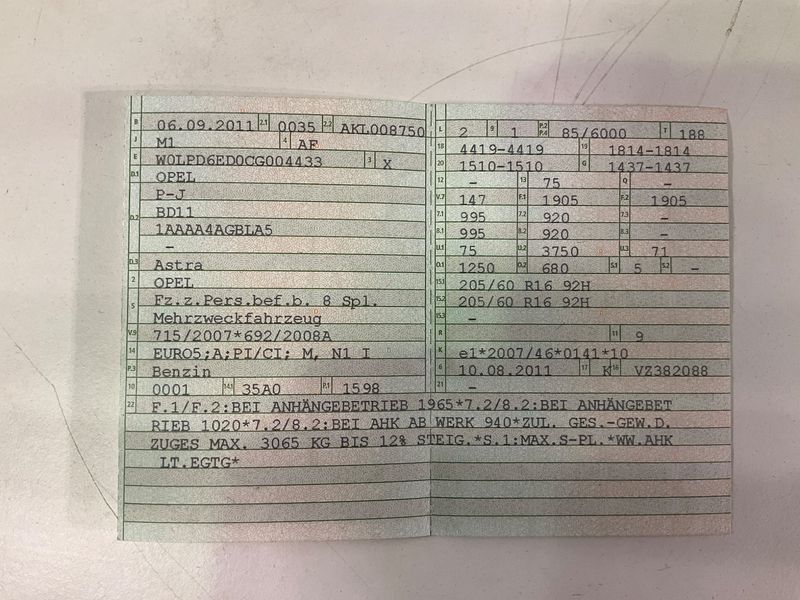 B 06.09.2011 2.1 0035 2.2 AKL008750
J M1 4 AF
E W0LPD6ED0CG004433 3 X
D.1 OPEL
D.2 P-J
BD11
1AAAA4AGBLA5
–
D.3 Astra
2 OPEL
5 Fz.z.Pers.bef.b. 8 Spl.
Mehrzweckfahrzeug
V.9 715/2007*692/2008A
14 EURO5;A;PI/CI; M, N1 I
P.3 Benzin
10 0001 14.1 35A0 P.1 1598
L 2 9 1 P.2 P.4 85/6000 T 188
18 4419-4419 19 1814-1814
20 1510-1510 G 1437-1437
12 – 13 75 Q –
V.7 147 F.1 1905 F.2 1905
7.1 995 7.2 920 7.3 –
8.1 995 8.2 920 8.3 –
U.1 75 U.2 3750 U.3 71
O.1 1250 O.2 680 S.1 5 S.2 –
15.1 205/60 R16 92H
15.2 205/60 R16 92H
15.3 –
R 11 9
K e1*2007/46*0141*10
6 10.08.2011 17 K 16 VZ382088
21 –
22 F.1/F.2:BEI ANHÄNGEBETRIEB 1965*7.2/8.2:BEI ANHÄNGEBET
RIEB 1020*7.2/8.2:BEI AHK AB WERK 940*ZUL. GES.-GEW.D.
ZUGES MAX. 3065 KG BIS 12% STEIG.*S.1:MAX.S-PL.*WW.AHK
LT.EGTG*